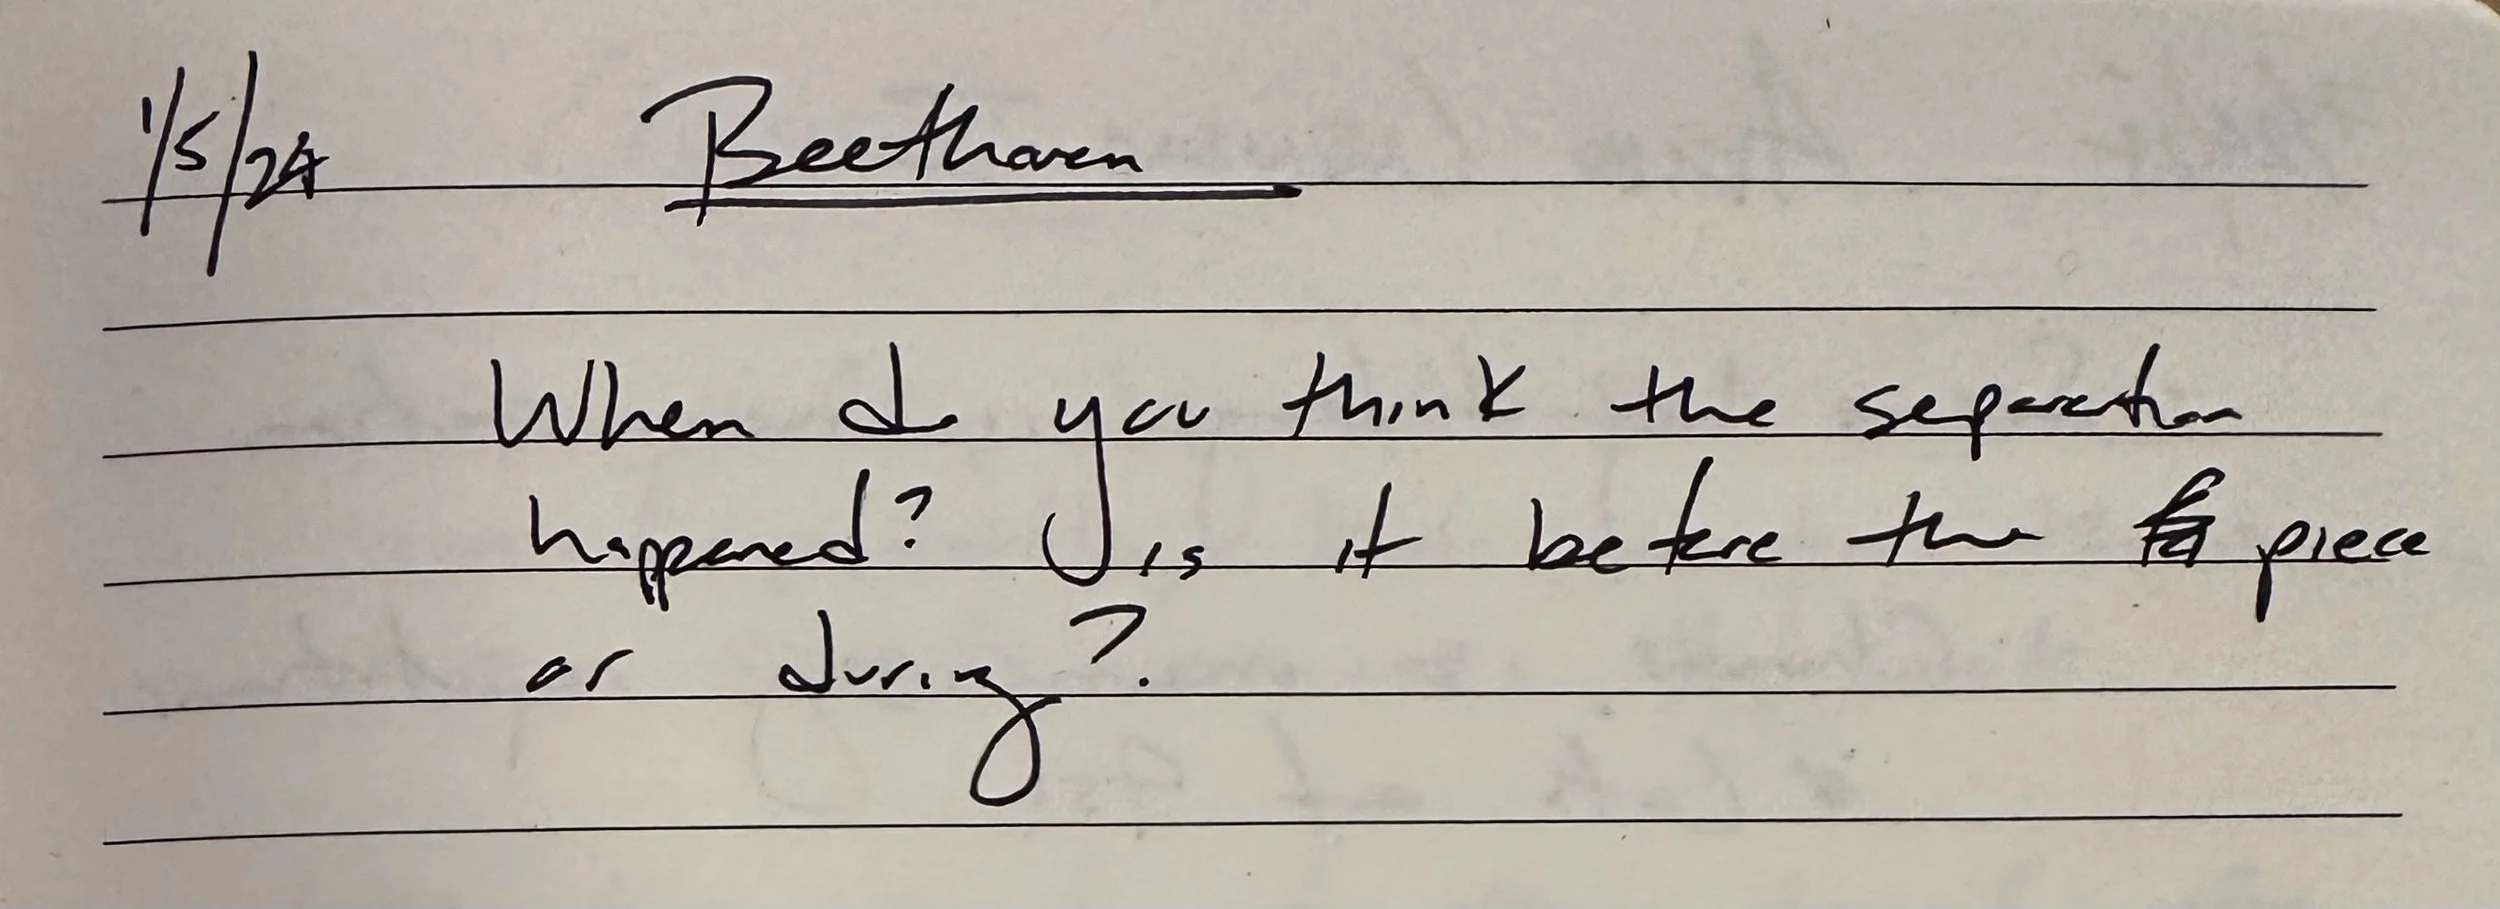 1/5/24 Beethoven
When do you think the separation
happened? is it before the piece
or during?